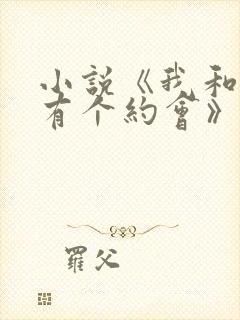 小説《我和
有个約會》
羅父